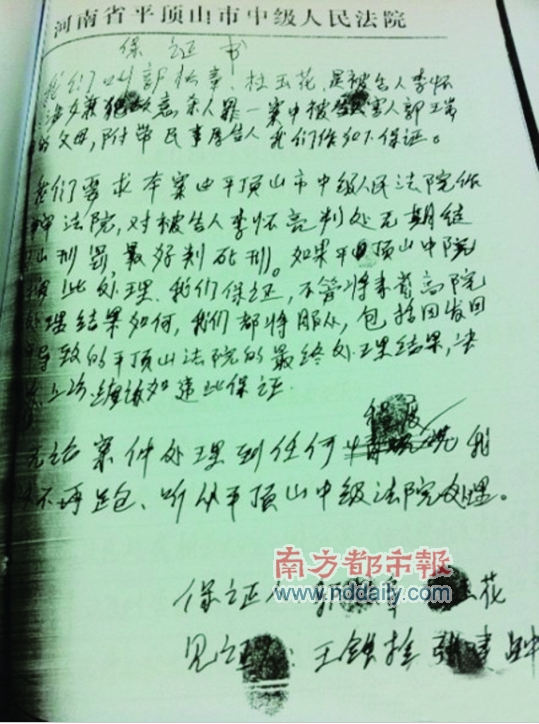 河南省平顶山市中级人民法院
保证书
我们叫郭松章、杜玉花,是被告人李怀
涉嫌犯故意杀人罪一案中被害人郭
的父母,附带民事原告人我们作如下保证。
我们要求本案由平顶山市中级人民法院作
审法院,对被告人李怀亮判处无期徒
刑罚最好判死刑。如果平顶山中院
按此处理,我们保证,不管将来省高院
处理结果如何,我们都将服从,包括因发回
导致的平顶山法院的最终处理结果,决
不上访,如违此保证.
程度
无论案件处理到任何 我
不再 、听从平顶山中级法院处理。
南方都市報
www.nddaily.com
保证人 郭 章 花
见证 : 王铁拴 张建